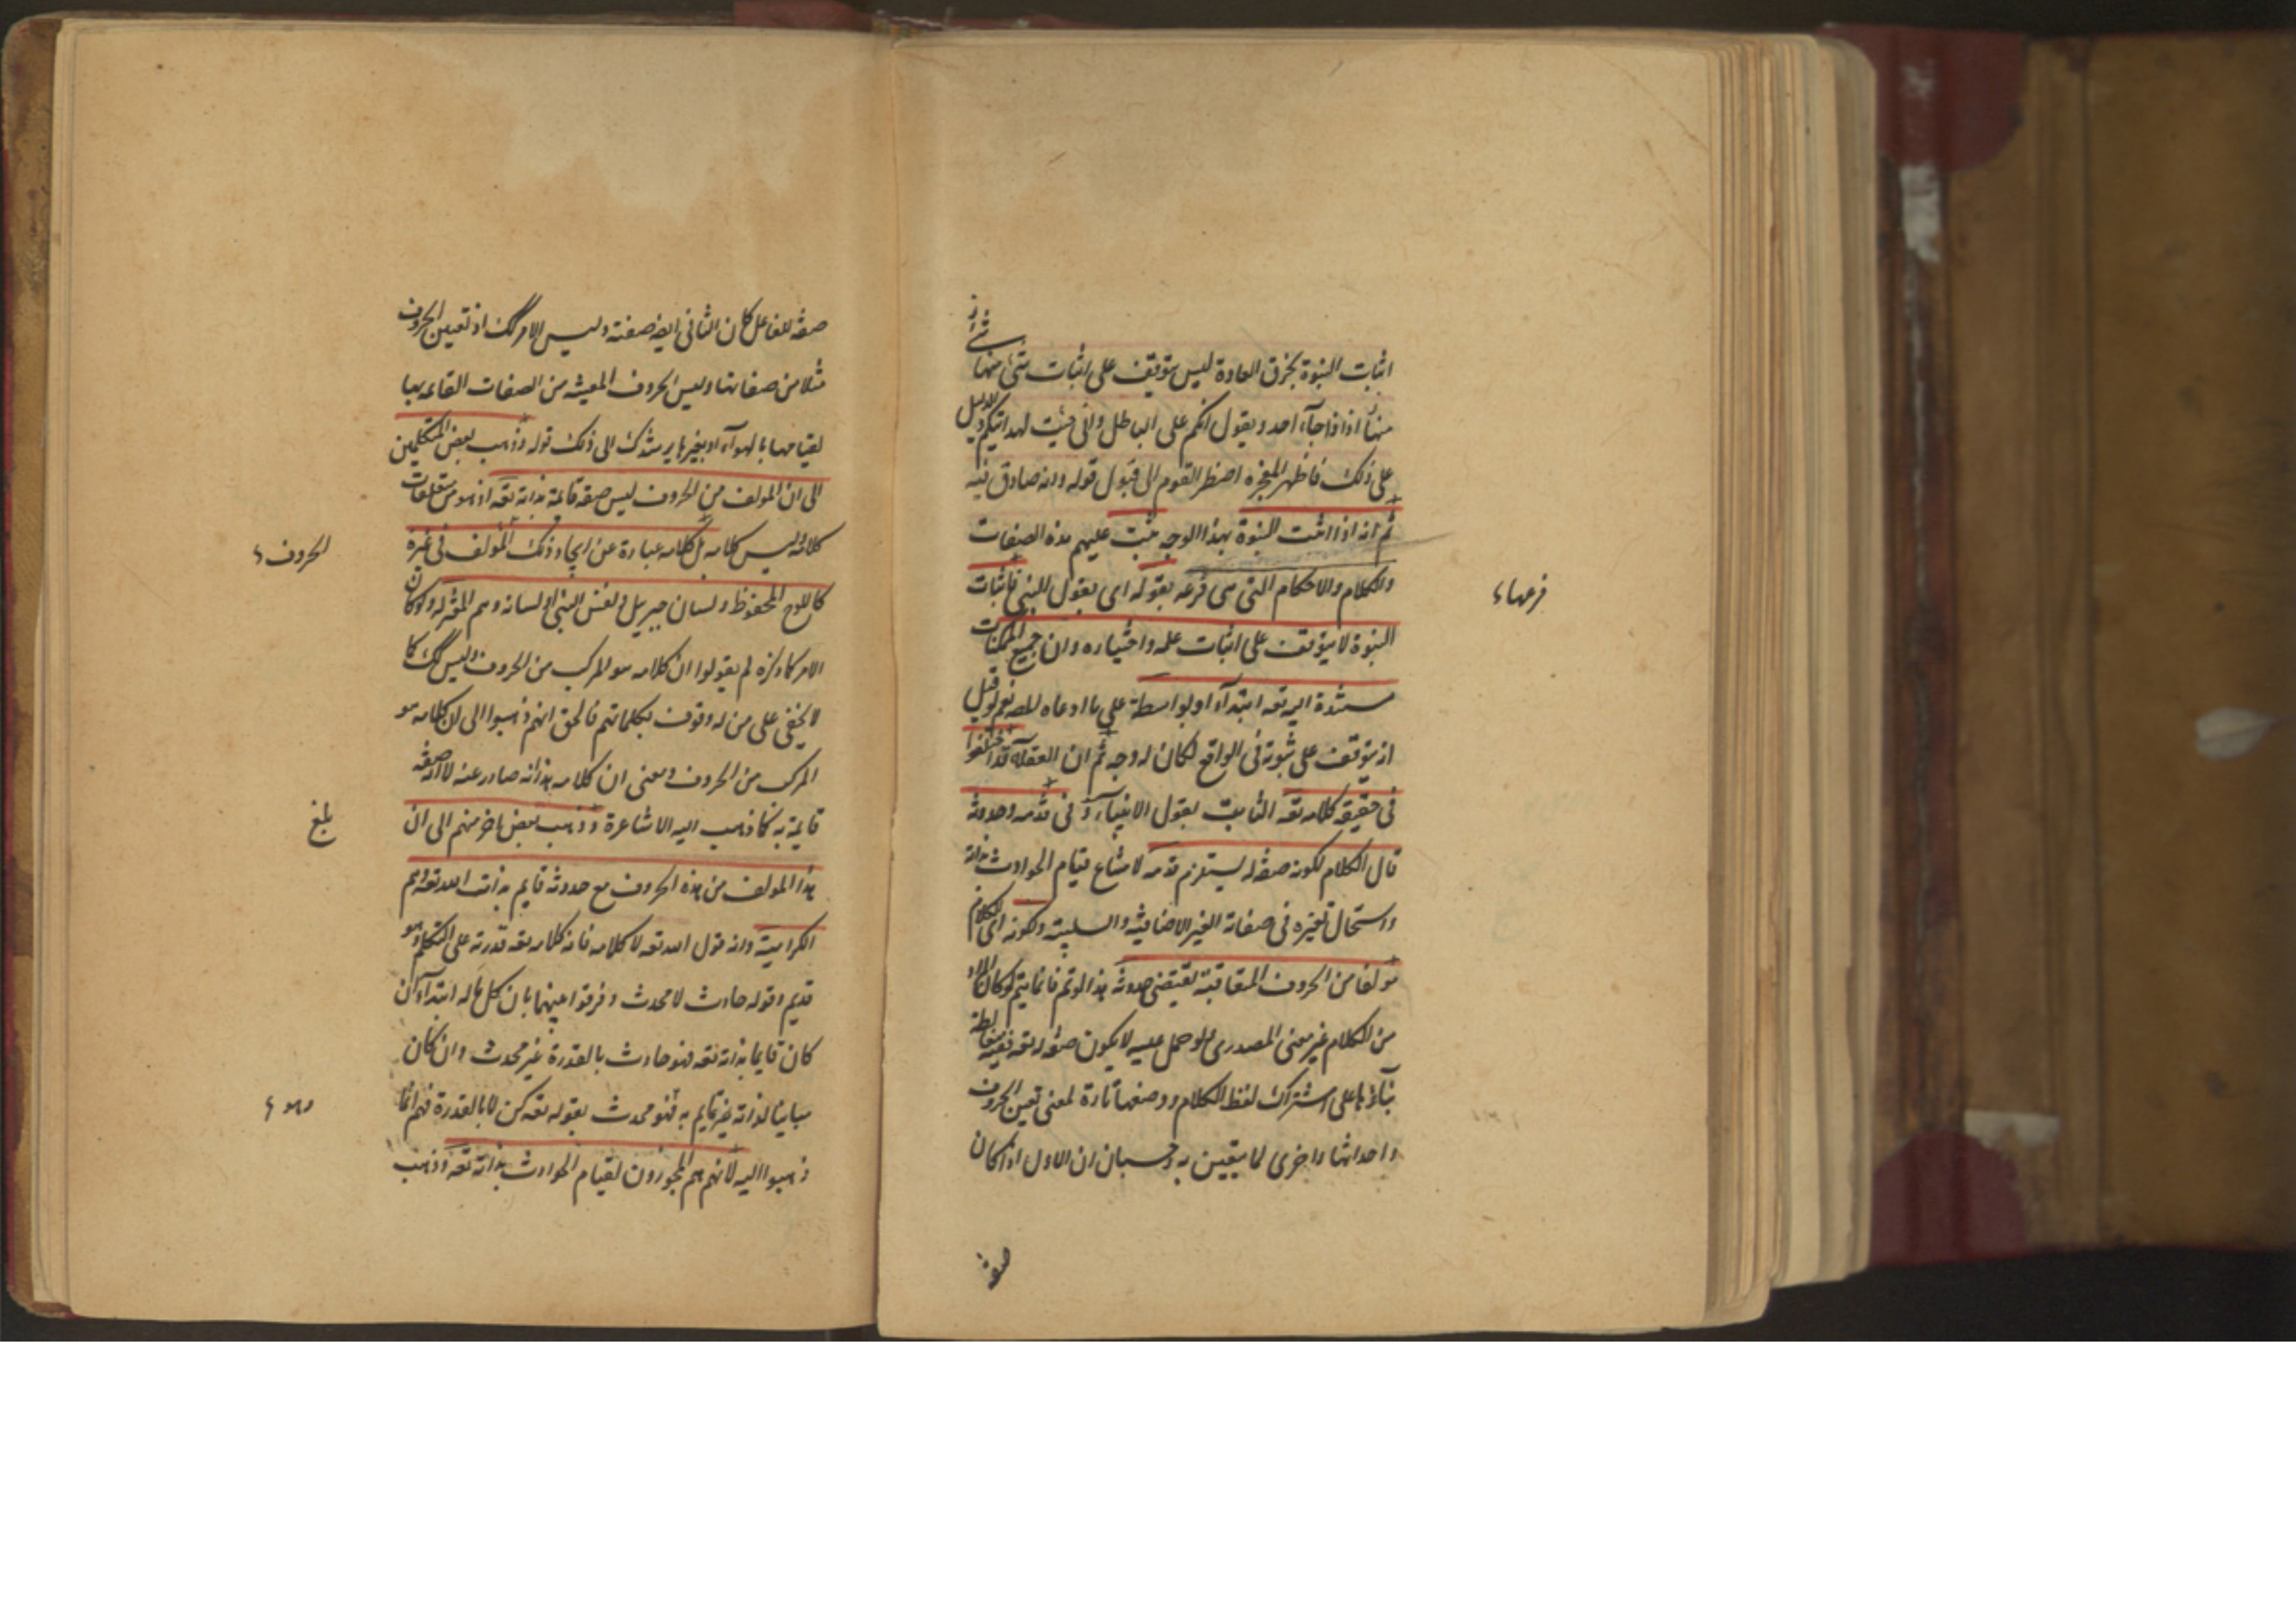 اثبات النبوة بخرق العادة ليس يتوقف على اثبات شئ منها
منها اذ اذا جآء احد ويقول انكم على الباطل وانى جئت لهدايتكم
على ذلك فاظهر المعجزه اضطر القوم الى قبول قوله وانه صادق فيه
ثم انه اذا اثبت النبوة بهذا الوجه يثبت عليهم هذه الصفات
والكلام والاحكام التى هى فرعه بقوله اى بقول النبى فاثبات
النبوة لا يتوقف على اثبات علمه واختياره وان جميع الممكنات
مستندة اليه تعه ابتدآء او بواسطة على ما ادعاه المصنف نعم لو قيل
انه يتوقف على ثبوته فى الواقع لكان له وجه ثم ان العقلآء قد اختلفوا
فى حقيقة كلامه تعه الثابت بقول الانبيآء وفى قدمه وحدوثه
قال الكلام لكونه صفة له يستلزم قدمه لامتناع قيام الحوادث بذاته
واستحال تغيره فى صفاته الغير الاضافية والسلبية ولكونه اى الكلام
مولفا من الحروف المتعاقبة يقتضى حدوثه هذا لو تم فانما يتم لو كان المراد
من الكلام غير معنى المصدرى ولو حمل عليه لا يكون صفة له تعه ففيه مغالطة
بنآؤها على اشتراك لفظ الكلام ووضعها تارة لمعنى تعين الحروف
واحداثها واخرى لما يتعين به وحسبان ان الاول اذا كان
صفة
فرعها
صفة للفاعل كان الثانى ايضا صفته وليس الامر كك اذ تعين الحروف
مثلا من صفاتها وليس الحروف المعينة من الصفات القائمه بها
لقيامها بالهوآء او بغيرها يرشدك الى ذلك قوله وذهب بعض المتكلمين
الى ان المولف من الحروف ليس صفة قايمة بذاته تعه اذ هو من متعلقات
كلامه وليس كلامه بل كلامه عبارة عن ايجاد ذلك المولف فى غيره
كاللوح المحفوظ ولسان جبريل ونفس النبى او لسانه وهم المعتزله ولو كان
الامر كما ذكره لم يقولوا ان كلامه هو المركب من الحروف وليس كك كما
لا يخفى على من له وقوف بكلماتهم فالحق انهم ذهبوا الى ان كلامه هو
المركب من الحروف ومعنى ان كلامه بذاته صادر عنه لا انه صفة
قايمة به كما ذهب اليه الاشاعرة وذهب بعض اخر منهم الى ان
هذا المولف من هذه الحروف مع حدوثه قايم بذات الله تعه وهم
الكرامية وانه قول الله تعه لا كلامه فانه كلامه تعه قدرته على التكلم وهو
قديم وقوله حادث لا محدث وفرقوا بينهما بان كل ما له ابتدآء ان
كان قايما بذاته تعه فهو حادث بالقدرة غير محدث وان كان
مباينا لذاته غير قايم به فهو محدث بقوله تعه كن لا بالقدرة فهم انما
ذهبوا اليه لانهم هم المجوزون لقيام الحوادث بذاته تعه وذهب
الحروف
بلغ
وهو